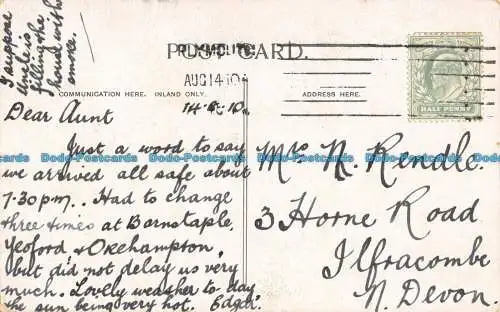 I suppose
Uncle is
filling the
house with
smoke.
POST CARD.
PLYMOUTH
AUG 14 10
COMMUNICATION HERE. INLAND ONLY.
ADDRESS HERE.
HALF PENNY
14-8-10.
Dear Aunt
Just a word to say
we arrived all safe about
7-30 p.m. Had to change
three times at Barnstaple,
Yeoford & Okehampton,
but did not delay us very
much. Lovely weather to-day
the sun being very hot. Edgar.
Mrs N. Rendle.
3 Horne Road
Ilfracombe
N. Devon.
Dodo-Postcards Dodo-Postcards Dodo-Postcards Dodo-Postcards
Dodo-Postcards Dodo-Postcards Dodo-Postcards Dodo-Postcards
Dodo-Postcards Dodo-Postcards Dodo-Postcards Dodo-Postcards